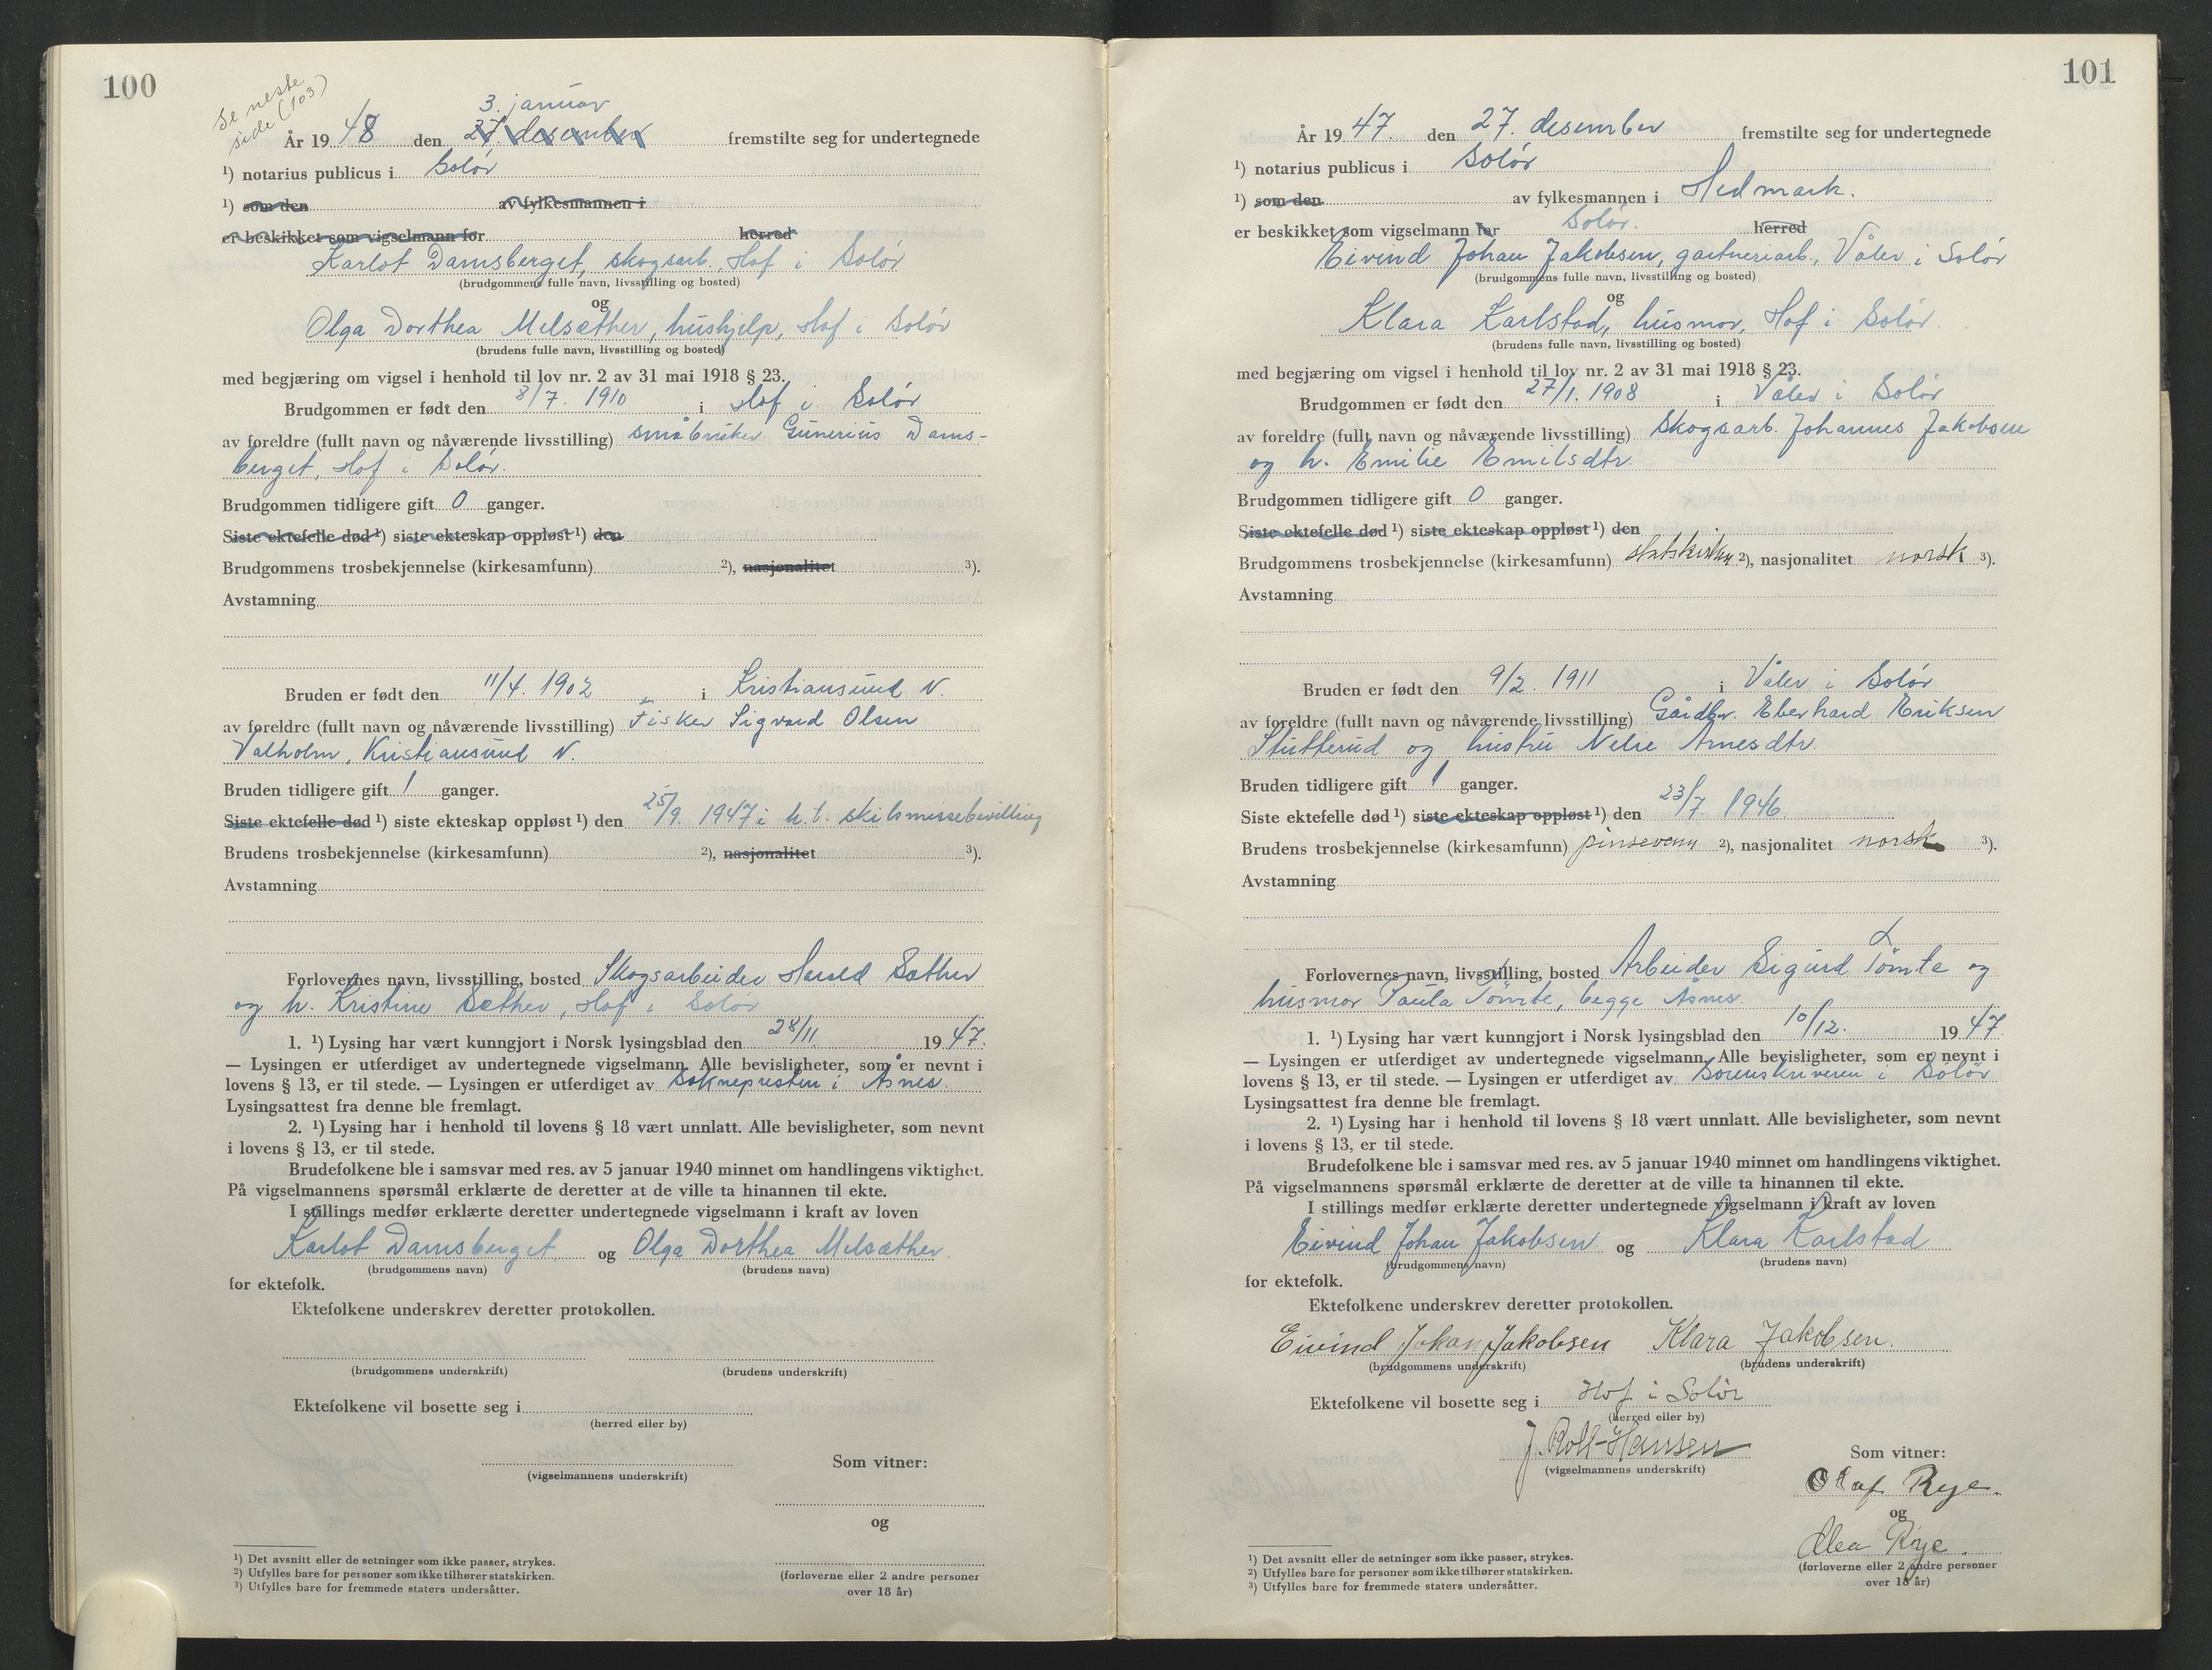 100
Se neste
side (103)
3. januar
År 19 48 den 27. desember fremstilte seg for undertegnede
¹) notarius publicus i Solør
¹) som den av fylkesmannen i
er beskikket som vigselmann for herred
Karlot Damsberget, skogsarb., Hof i Solør
(brudgommens fulle navn, livsstilling og bosted)
og
Olga Dorthea Melsæther, hushjelp, Hof i Solør
(brudens fulle navn, livsstilling og bosted)
med begjæring om vigsel i henhold til lov nr. 2 av 31 mai 1918 § 23.
Brudgommen er født den 8/7. 1910 i Hof i Solør
av foreldre (fullt navn og nåværende livsstilling) småbruker Gunerius Dams-
berget, Hof i Solør.
Brudgommen tidligere gift 0 ganger.
Siste ektefelle død ¹) siste ekteskap oppløst ¹) den
Brudgommens trosbekjennelse (kirkesamfunn) ²), nasjonalitet ³).
Avstamning
Bruden er født den 11/4. 1902 i Kristiansund N.
av foreldre (fullt navn og nåværende livsstilling) Fisker Sigvard Olsen
Valholm, Kristiansund N.
Bruden tidligere gift 1 ganger.
Siste ektefelle død ¹) siste ekteskap oppløst ¹) den 25/9. 1947 i h.t. skilsmissebevilling
Brudens trosbekjennelse (kirkesamfunn) ²), nasjonalitet ³).
Avstamning
Forlovernes navn, livsstilling, bosted Skogsarbeider Harald Sæther
og h. Kristine Sæther, Hof i Solør
1. ¹) Lysing har vært kunngjort i Norsk lysingsblad den 28/11. 19 47.
— Lysingen er utferdiget av undertegnede vigselmann. Alle bevisligheter, som er nevnt i
lovens § 13, er til stede. — Lysingen er utferdiget av Soknepresten i Åsnes.
Lysingsattest fra denne ble fremlagt.
2. ¹) Lysing har i henhold til lovens § 18 vært unnlatt. Alle bevisligheter, som nevnt
i lovens § 13, er til stede.
Brudefolkene ble i samsvar med res. av 5 januar 1940 minnet om handlingens viktighet.
På vigselmannens spørsmål erklærte de deretter at de ville ta hinannen til ekte.
I stillings medfør erklærte deretter undertegnede vigselmann i kraft av loven
Karlot Damsberget og Olga Dorthea Melsæther.
(brudgommens navn) (brudens navn)
for ektefolk.
Ektefolkene underskrev deretter protokollen.
(brudgommens underskrift) (brudens underskrift)
Ektefolkene vil bosette seg i
(herred eller by)
(vigselmannens underskrift)
Som vitner:
og
(forloverne eller 2 andre personer
over 18 år)
¹) Det avsnitt eller de setninger som ikke passer, strykes.
²) Utfylles bare for personer som ikke tilhører statskirken.
³) Utfylles bare for fremmede staters undersåtter.
101
År 19 47. den 27. desember fremstilte seg for undertegnede
¹) notarius publicus i Solør
¹) som den av fylkesmannen i Hedmark.
er beskikket som vigselmann for Solør. herred
Eivind Johan Jakobsen, gartneriarb., Våler i Solør
(brudgommens fulle navn, livsstilling og bosted)
og
Klara Karlstad, husmor, Hof i Solør.
(brudens fulle navn, livsstilling og bosted)
med begjæring om vigsel i henhold til lov nr. 2 av 31 mai 1918 § 23.
Brudgommen er født den 27/1. 1908 i Våler i Solør
av foreldre (fullt navn og nåværende livsstilling) Skogsarb. Johannes Jakobsen
og h. Emilie Emilsdtr.
Brudgommen tidligere gift 0 ganger.
Siste ektefelle død ¹) siste ekteskap oppløst ¹) den
Brudgommens trosbekjennelse (kirkesamfunn) statskirken ²), nasjonalitet norsk ³).
Avstamning
Bruden er født den 9/2. 1911 i Våler i Solør
av foreldre (fullt navn og nåværende livsstilling) Gårdbr. Eberhard Eriksen
Stutterud og hustru Nelie Arnesdtr.
Bruden tidligere gift 1 ganger.
Siste ektefelle død ¹) siste ekteskap oppløst ¹) den 23/7. 1946.
Brudens trosbekjennelse (kirkesamfunn) pinsevenn ²), nasjonalitet norsk ³).
Avstamning
Forlovernes navn, livsstilling, bosted Arbeider Sigurd Tømte og
husmor Paula Tømte, begge Åsnes.
1. ¹) Lysing har vært kunngjort i Norsk lysingsblad den 10/12. 19 47.
— Lysingen er utferdiget av undertegnede vigselmann. Alle bevisligheter, som er nevnt i
lovens § 13, er til stede. — Lysingen er utferdiget av Sorenskriveren i Solør
Lysingsattest fra denne ble fremlagt.
2. ¹) Lysing har i henhold til lovens § 18 vært unnlatt. Alle bevisligheter, som nevnt
i lovens § 13, er til stede.
Brudefolkene ble i samsvar med res. av 5 januar 1940 minnet om handlingens viktighet.
På vigselmannens spørsmål erklærte de deretter at de ville ta hinannen til ekte.
I stillings medfør erklærte deretter undertegnede vigselmann i kraft av loven
Eivind Johan Jakobsen og Klara Karlstad
(brudgommens navn) (brudens navn)
for ektefolk.
Ektefolkene underskrev deretter protokollen.
Eivind Johan Jakobsen Klara Jakobsen.
(brudgommens underskrift) (brudens underskrift)
Ektefolkene vil bosette seg i Hof i Solør
(herred eller by)
J. Roll-Hansen
(vigselmannens underskrift)
Som vitner:
Olaf Rye.
og
Alea Rye.
(forloverne eller 2 andre personer
over 18 år)
¹) Det avsnitt eller de setninger som ikke passer, strykes.
²) Utfylles bare for personer som ikke tilhører statskirken.
³) Utfylles bare for fremmede staters undersåtter.